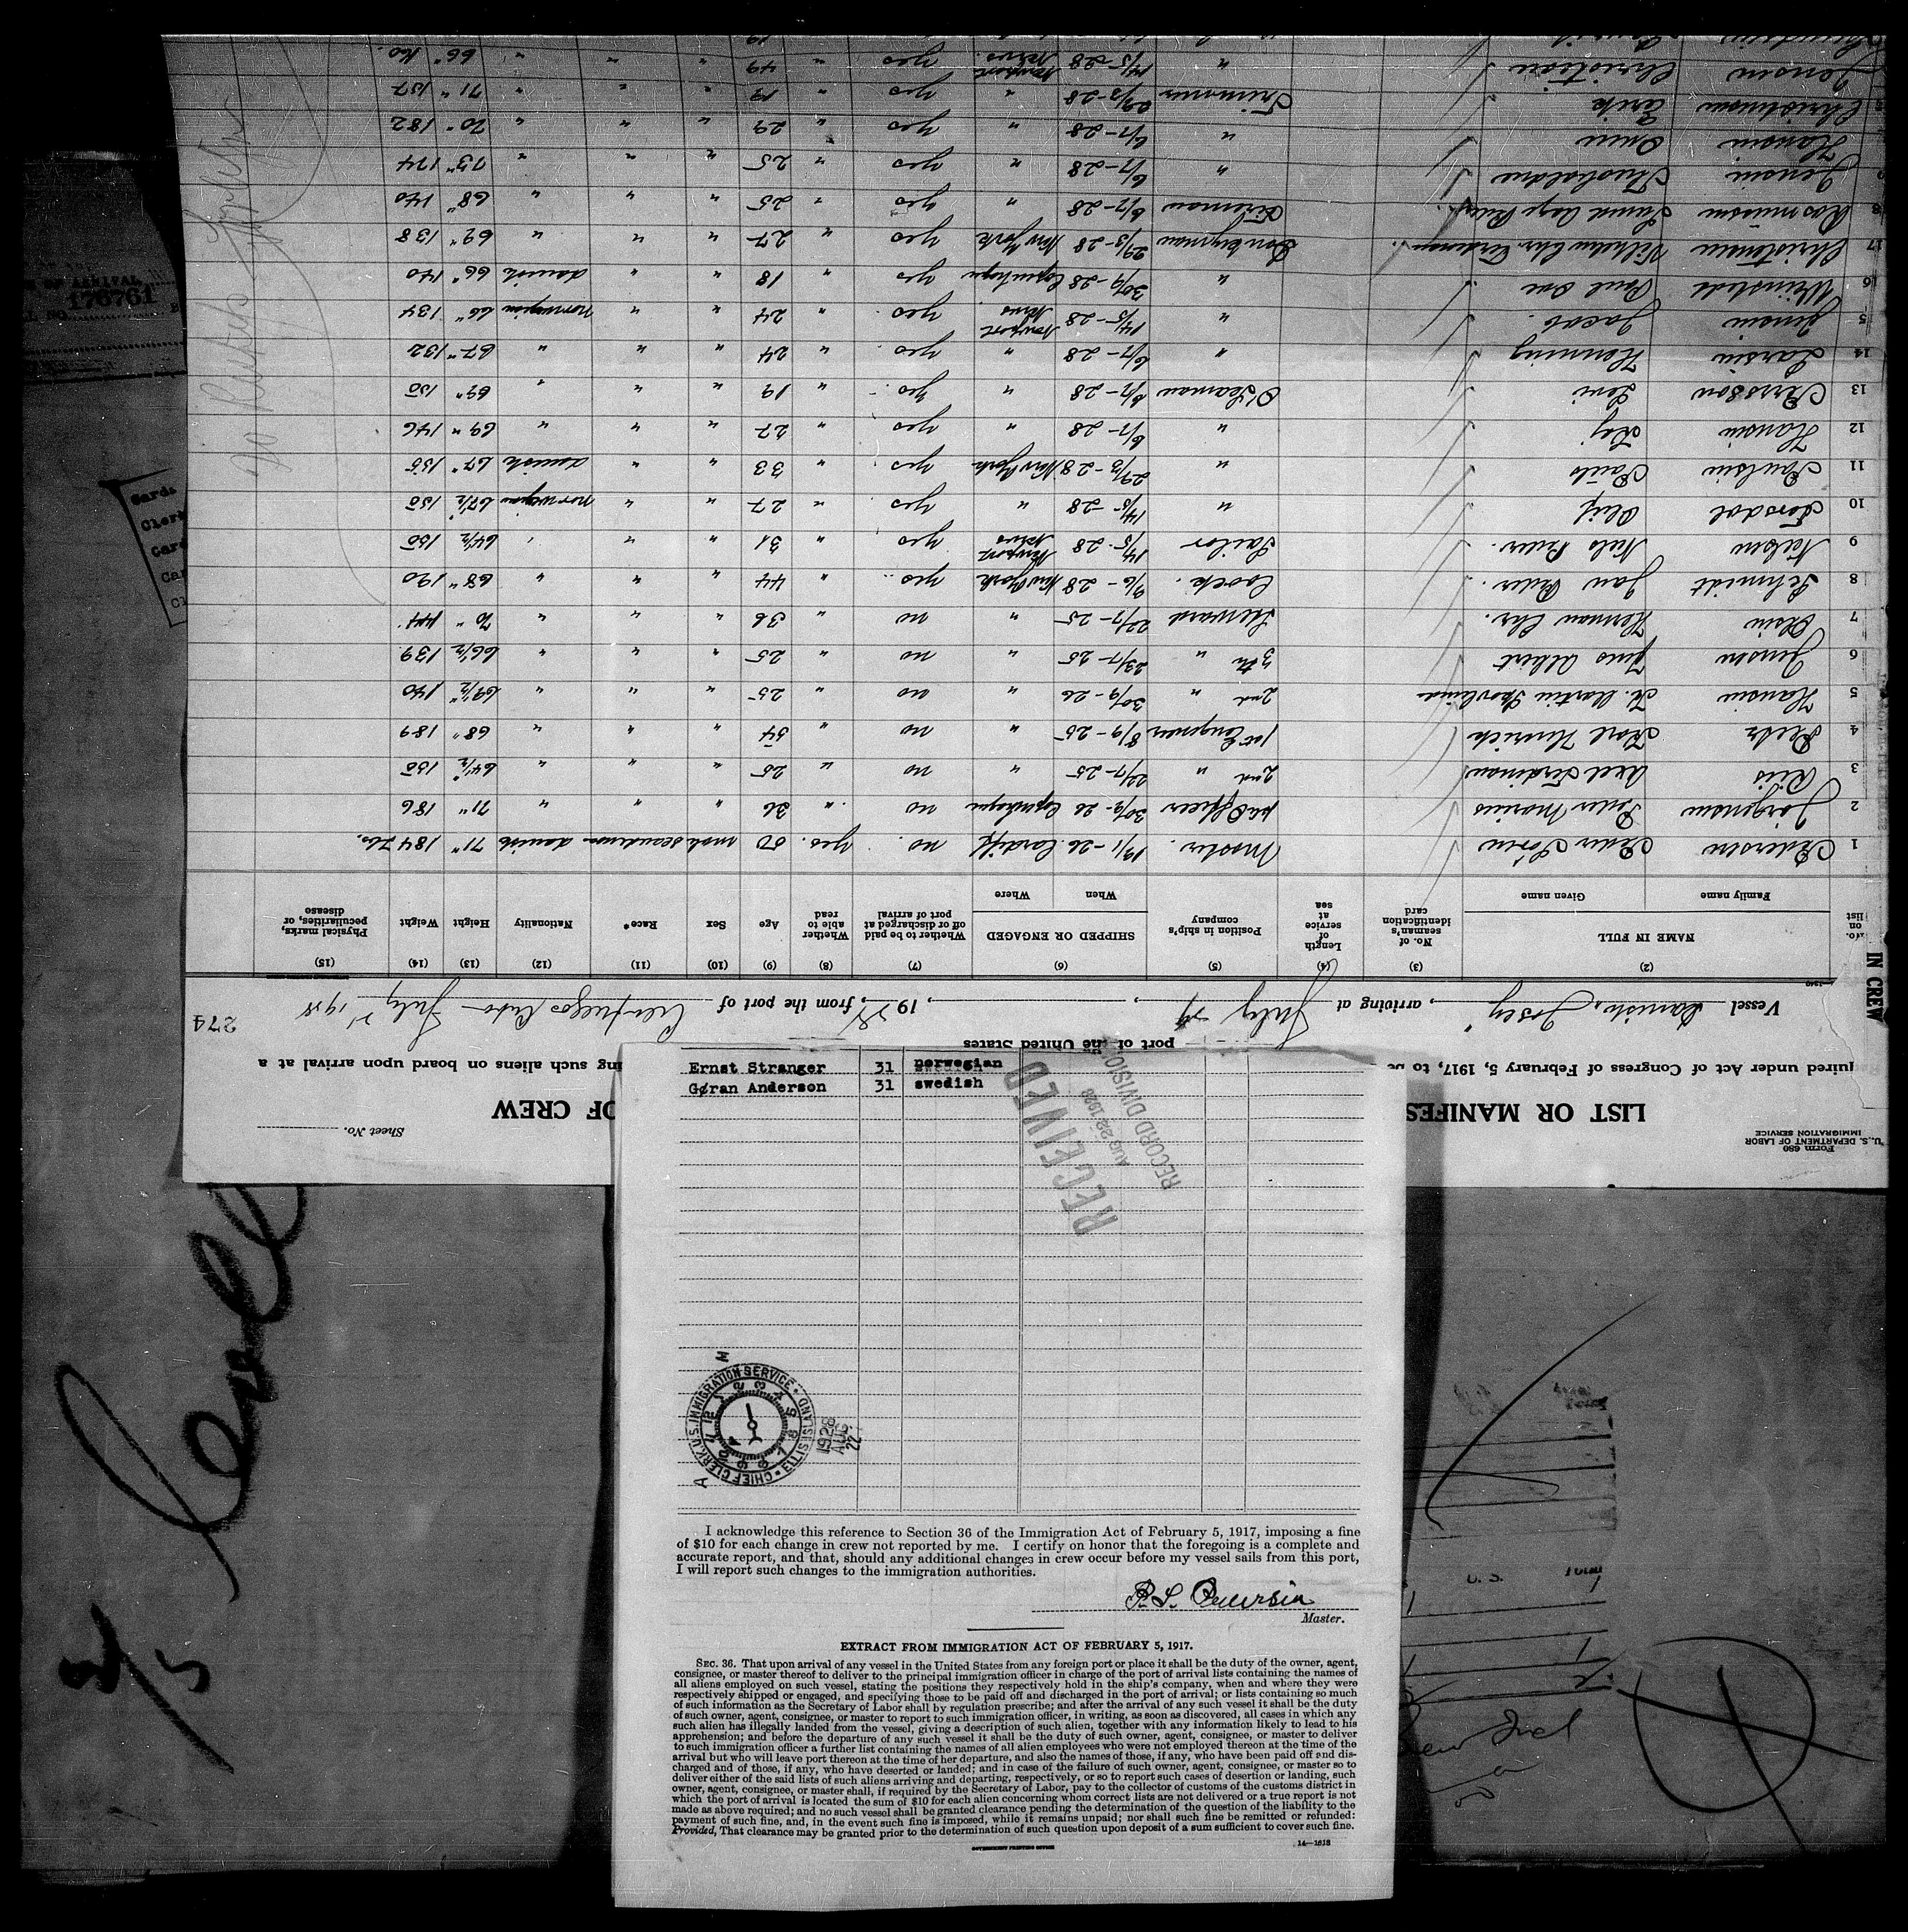 Form 680
U.S. DEPARTMENT OF LABOR
IMMIGRATION SERVICE
Sheet No.
LIST OR MANIFES OF CREW
quired under Act of Congress of February 5, 1917, to be ing such aliens on board upon arrival at a
port of the United States
Vessel Danish , arriving at July , 1928, from the port of Cienfuegos Cuba July 2' 1928
274
IN CREW
(2) (3) (4) (5) (6) (7) (8) (9) (10) (11) (12) (13) (14) (15)
No. on list NAME IN FULL No. of seaman's identification card Length of service at sea Position in ship's company SHIPPED OR ENGAGED Whether to be paid off or discharged at port of arrival Whether able to read Age Sex Race* Nationality Height Weight Physical marks, peculiarities, or disease
Family name Given name When Where
1 Pedersen Peder Sören Master. 19/1-26 Cardiff no. yes. 50 male scandinav danish 71" 184 lbs.
2 Jörgensen Peder Marius 1st Officer 30/9-26 Copenhagen no " 26 " " " 71" 186
3 Riis Axel Ferdinand 2nd " 22/7-25 " no " 25 " " " 64½" 155
4 Karl Hinrich 1st Engineer 8/9-25 " no " 54 " " " 68" 189
5 Hansen K. Martin 2nd " 30/9-26 " no " 25 " " " 69½" 140
6 Jensen Jens Albert 3th " 23/7-25 " no " 25 " " " 66½" 139
7 Olsen Herman Chr. Steward 22/7-25 " no " 36 " " " 70" 144
8 Schmidt Jan Peder Coock. 9/6-28 New York yes " 44 " " " 68" 190
9 Nielsen Niels Peder Sailor 14/5-28 Newport News yes " 31 " " " 64½ 155
10 Torsdal Oluf " 14/5-28 " yes " 27 " " norwegian 67½" 155
11 Paulsen Pauls " 29/3-28 New York yes " 33 " " danish 67" 155
12 Hansen Kaj " 6/7-28 " yes " 27 " " " 69" 146
13 Persson Levi O'Seaman 6/7-28 " yes " 19 " " " 69" 155
14 Larsen Henning " 6/7-28 " yes " 24 " " " 67" 132
5 Jensen Jacob. " 14/5-28 Newport News yes " 24 " " norwegian 66" 134
16 Weinstedt Poul Ove " 30/9-28 Copenhagen yes " 18 " " danish 66" 140
17 Christensen Vilhelm Chr. Donkeyman 29/3-28 New York yes " 27 " " " 69" 138
8 Rasmussen Svend Aage Peder Fireman 6/7-28 " yes " 25 " " " 68" 140
9 Jensen Theobaldue " 6/7-28 " yes " 25 " " " 73" 174
Hansen " 6/7-28 " yes " 29 " " " 70" 182
Christensen Erik Trimmer 29/3-28 " yes " 19 " " " 71" 157
Jensen Christian " 14/5-28 Newport News yes " 49 " " " 66" 160.
OF ARRIVAL
176761
Cards
Clerk
Card
Ernst Stranger 31 norwegian
Gøran Anderson 31 swedish
RECEIVED
AUG 22 1928
RECORD DIVISION
CHIEF CLERK, U.S. IMMIGRATION SERVICE ELLIS ISLAND
1928 AUG 22
A M
I acknowledge this reference to Section 36 of the Immigration Act of February 5, 1917, imposing a fine
of $10 for each change in crew not reported by me. I certify on honor that the foregoing is a complete and
accurate report, and that, should any additional changes in crew occur before my vessel sails from this port,
I will report such changes to the immigration authorities.
P. S. Pedersen
Master.
EXTRACT FROM IMMIGRATION ACT OF FEBRUARY 5, 1917.
SEC. 36. That upon arrival of any vessel in the United States from any foreign port or place it shall be the duty of the owner, agent,
consignee, or master thereof to deliver to the principal immigration officer in charge of the port of arrival lists containing the names of
all aliens employed on such vessel, stating the positions they respectively hold in the ship's company, when and where they were
respectively shipped or engaged, and specifying those to be paid off and discharged in the port of arrival; or lists containing so much
of such information as the Secretary of Labor shall by regulation prescribe; and after the arrival of any such vessel it shall be the duty
of such owner, agent, consignee, or master to report to such immigration officer, in writing, as soon as discovered, all cases in which any
such alien has illegally landed from the vessel, giving a description of such alien, together with any information likely to lead to his
apprehension; and before the departure of any such vessel it shall be the duty of such owner, agent, consignee, or master to deliver
to such immigration officer a further list containing the names of all alien employees who were not employed thereon at the time of the
arrival but who will leave port thereon at the time of her departure, and also the names of those, if any, who have been paid off and dis-
charged and of those, if any, who have deserted or landed; and in case of the failure of such owner, agent, consignee, or master so to
deliver either of the said lists of such aliens arriving and departing, respectively, or so to report such cases of desertion or landing, such
owner, agent, consignee, or master shall, if required by the Secretary of Labor, pay to the collector of customs of the customs district in
which the port of arrival is located the sum of $10 for each alien concerning whom correct lists are not delivered or a true report is not
made as above required; and no such vessel shall be granted clearance pending the determination of the question of the liability to the
payment of such fine, and, in the event such fine is imposed, while it remains unpaid; nor shall such fine be remitted or refunded:
Provided, That clearance may be granted prior to the determination of such question upon deposit of a sum sufficient to cover such fine.
GOVERNMENT PRINTING OFFICE
14—1618
U. S. Total